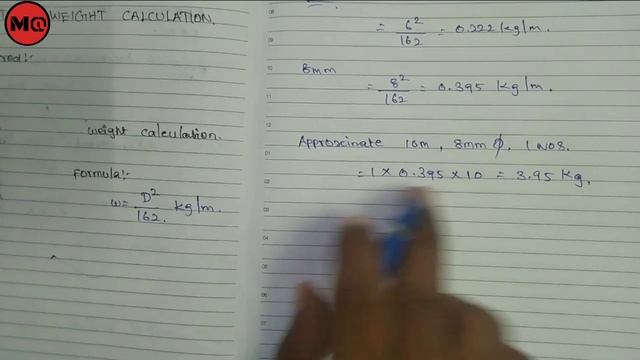 MQ
WEIGHT CALCULATION.
weight calculation.
Formula:-
w= D²/162. kg/m.
= 6²/162 = 0.222 kg/m.
8mm
= 8²/162 = 0.395 kg/m.
Approxinate 10m, 8mm ϕ, 1 NOS.
= 1 × 0.395 × 10 = 3.95 kg,